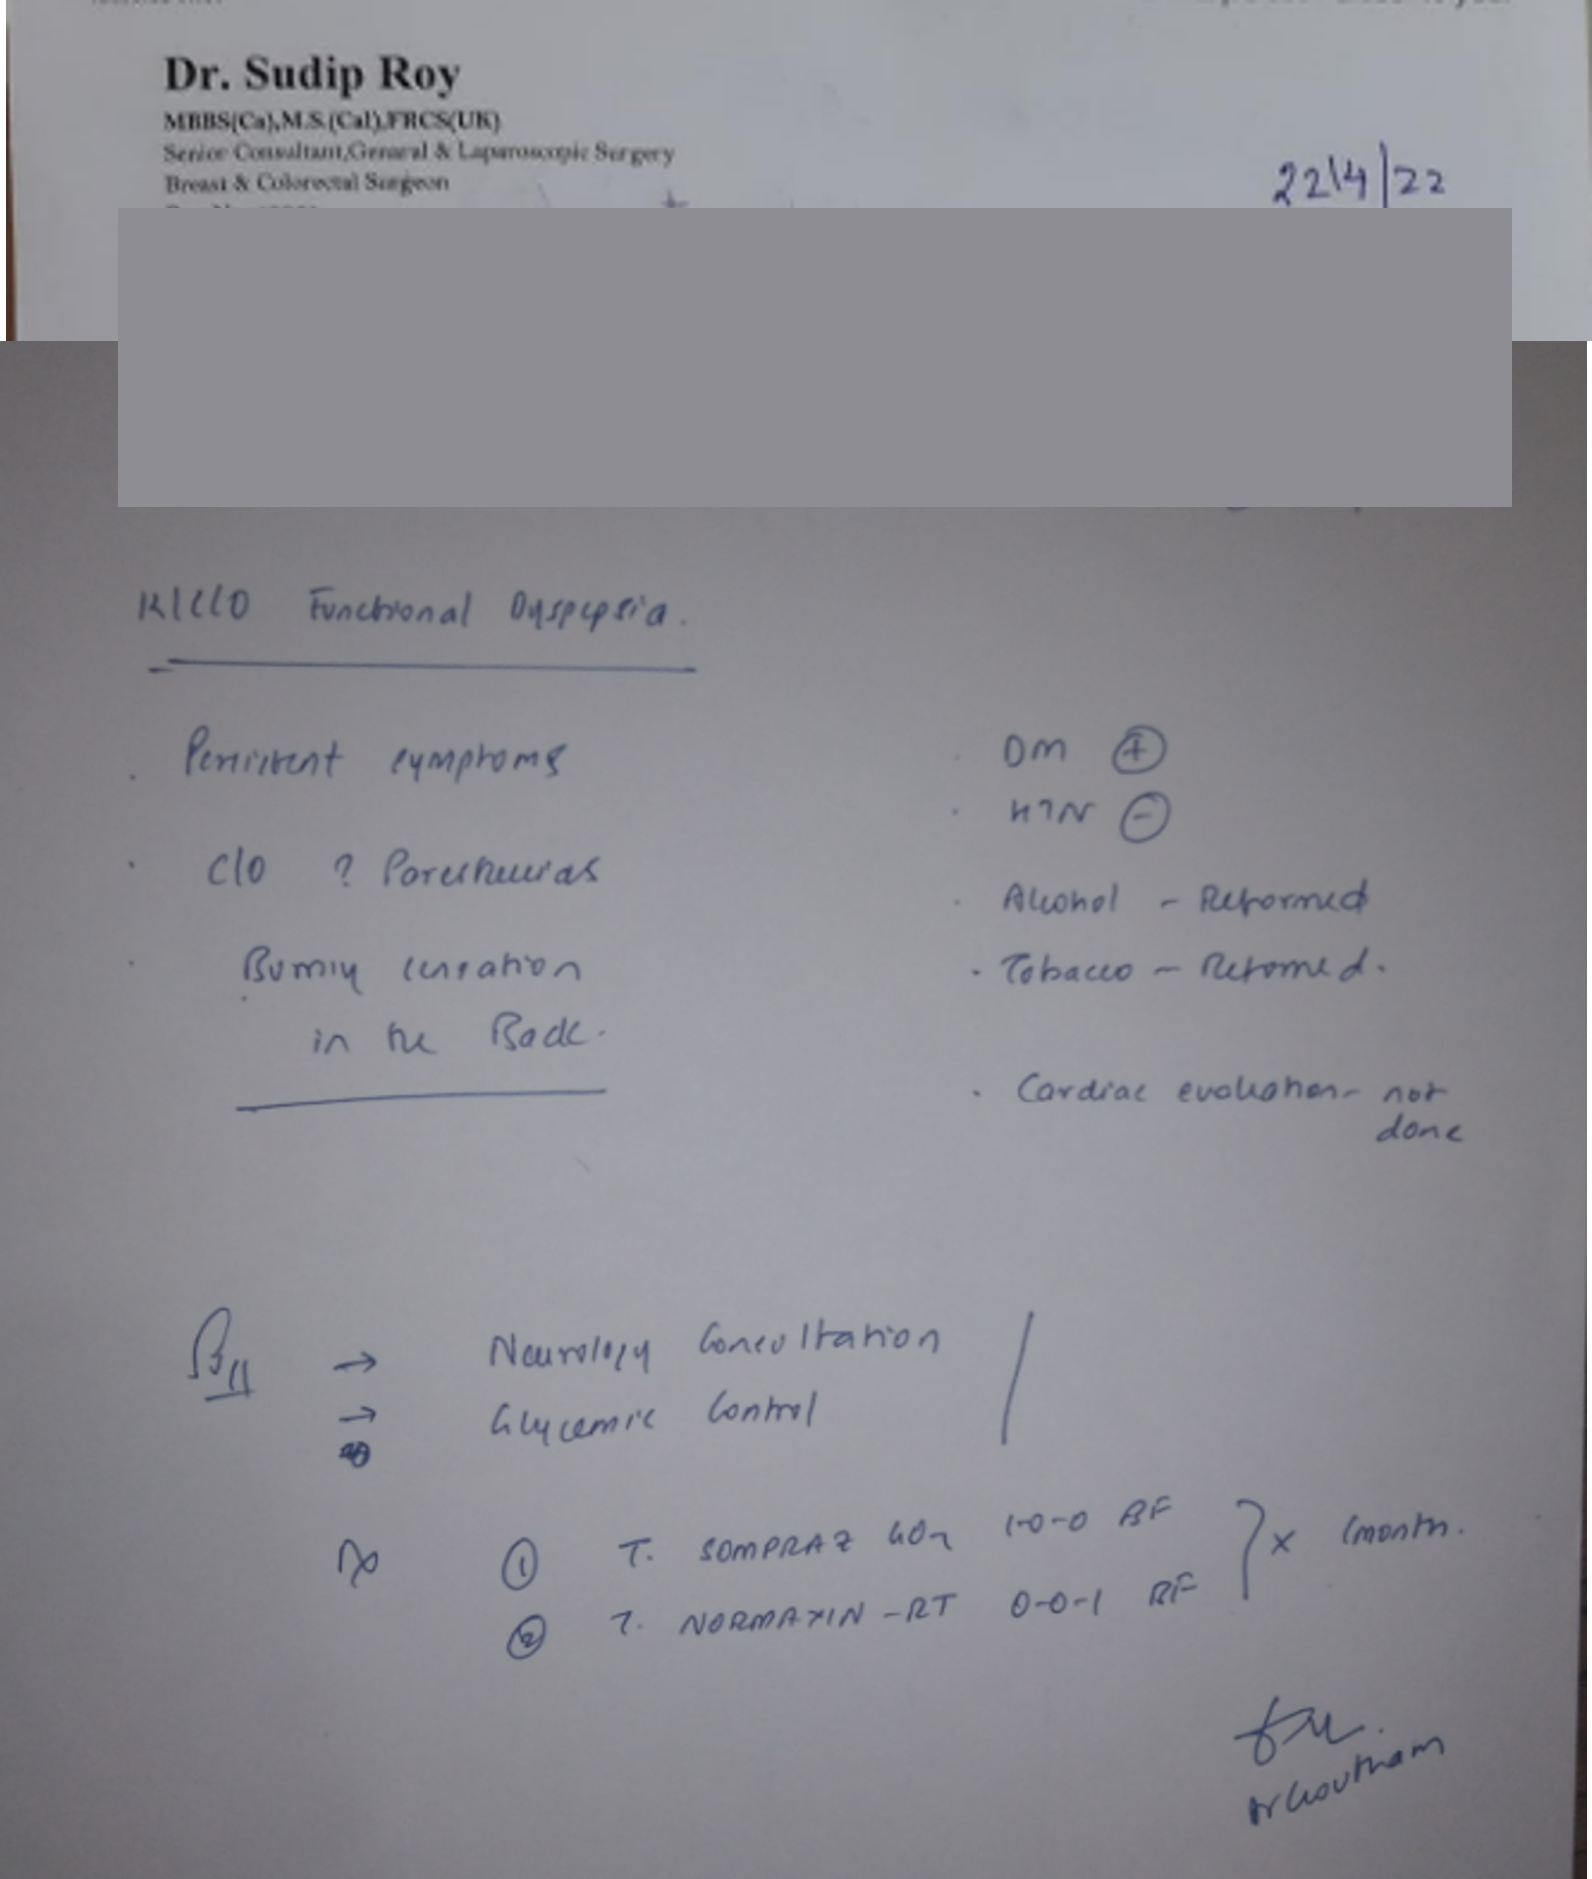 Dr. Sudip Roy
MBBS(Ca),M.S.(Cal),FRCS(UK)
Senior Consultant,General & Laparoscopic Surgery
Breast & Colorectal Surgeon
22/4/22
K/C/O Functional Dyspepsia.
. Persistent symptoms
. C/O ? Paresthesias
. Burning sensation
in the Back.
. DM +
. HTN -
. Alcohol - Reformed
. Tobacco - Reformed.
. Cardiac evaluation - not
done
→ Neurology Consultation
→ Glycemic Control
Rx 1 T. SOMPRAZ 40 1-0-0 BF
2 T. NORMAXIN-RT 0-0-1 BF
x 1 month.
Dr Goutham